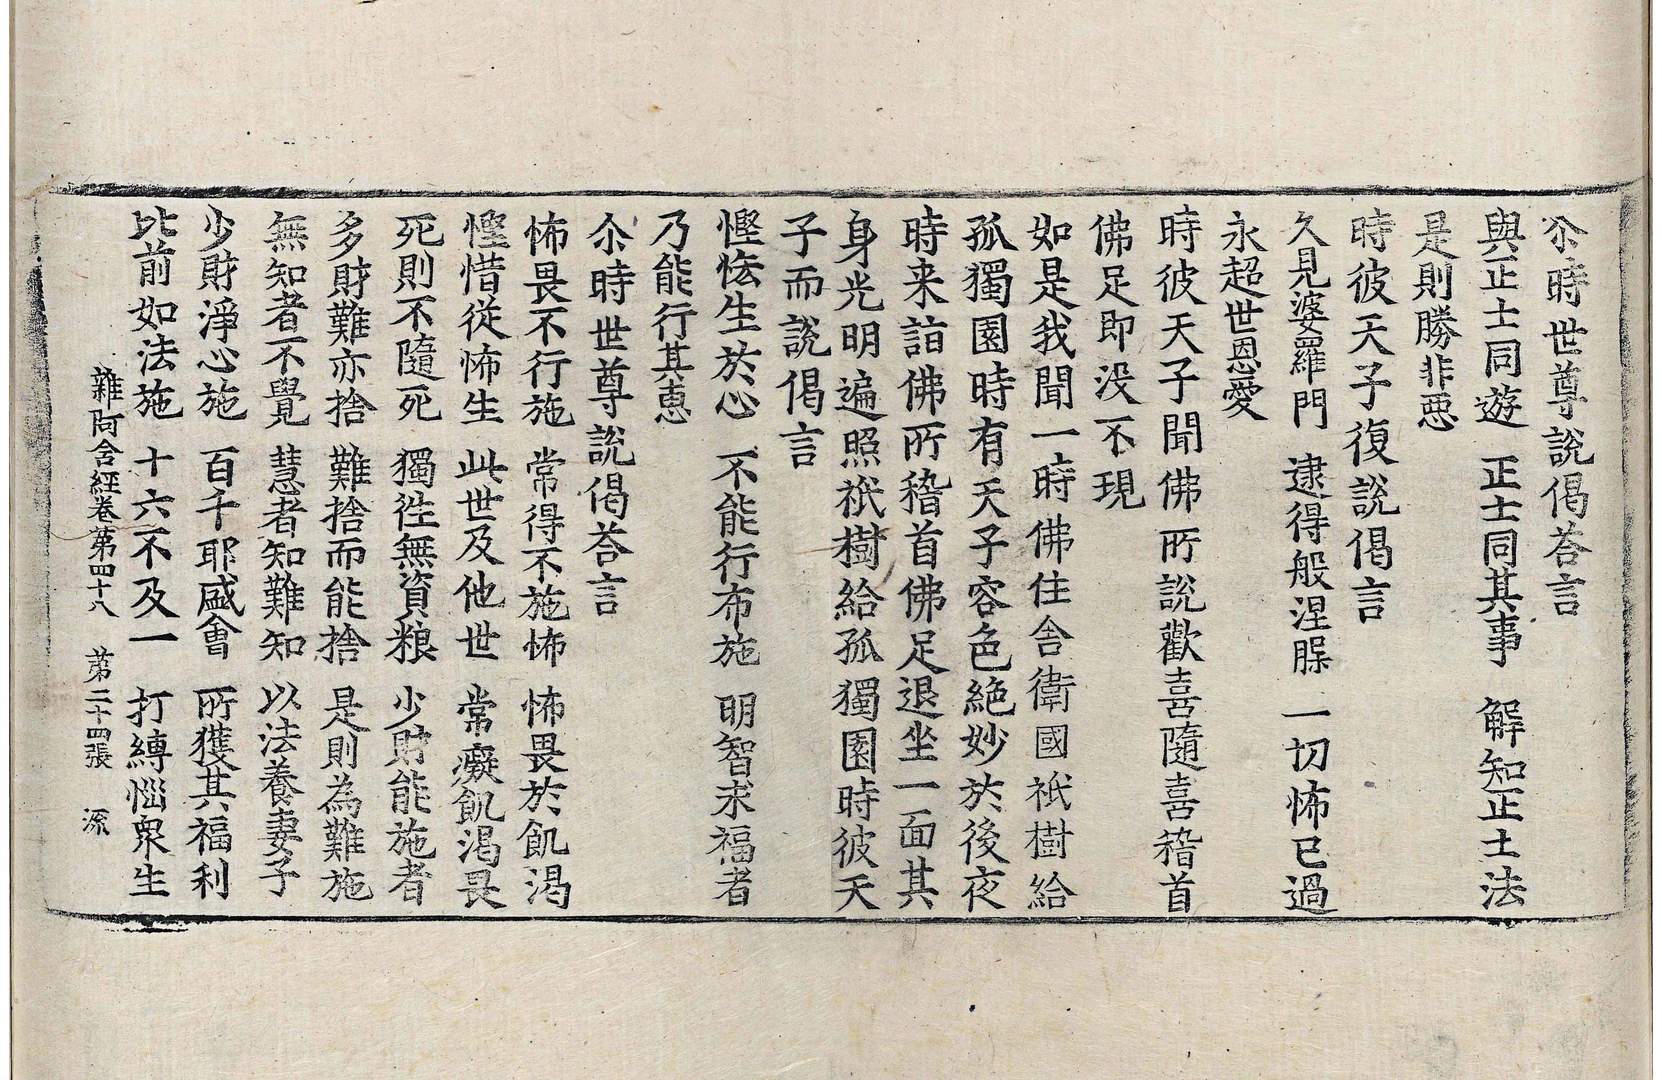 尒時世尊說偈荅言
與正士同遊　正士同其事　解知正士法
是則勝非惡
時彼天子復說偈言
久見婆羅門　逮得般涅䏶　一切怖已過
永超世恩愛
時彼天子聞佛所說歡喜隨喜稽首
佛足即没不現
如是我聞一時佛住舍衛國祇樹給
孤獨園時有天子容色絶妙於後夜
時来詣佛所稽首佛足退坐一面其
身光明遍照祇樹給孤獨園時彼天
子而說偈言
慳悋生於心　不能行布施　明智求福者
乃能行其恵
尒時世尊說偈荅言
怖畏不行施　常得不施怖　怖畏於飢渴
慳惜從怖生　此世及他世　常癡飢渴畏
死則不隨死　獨徃無資粮　少財能施者
多財難亦捨　難捨而能捨　是則為難施
無知者不覺　慧者知難知　以法養妻子
少財淨心施　百千耶盛會　所獲其福利
比前如法施　十六不及一　打縛惱衆生
雜阿含經卷第四十八　第二十四張　流